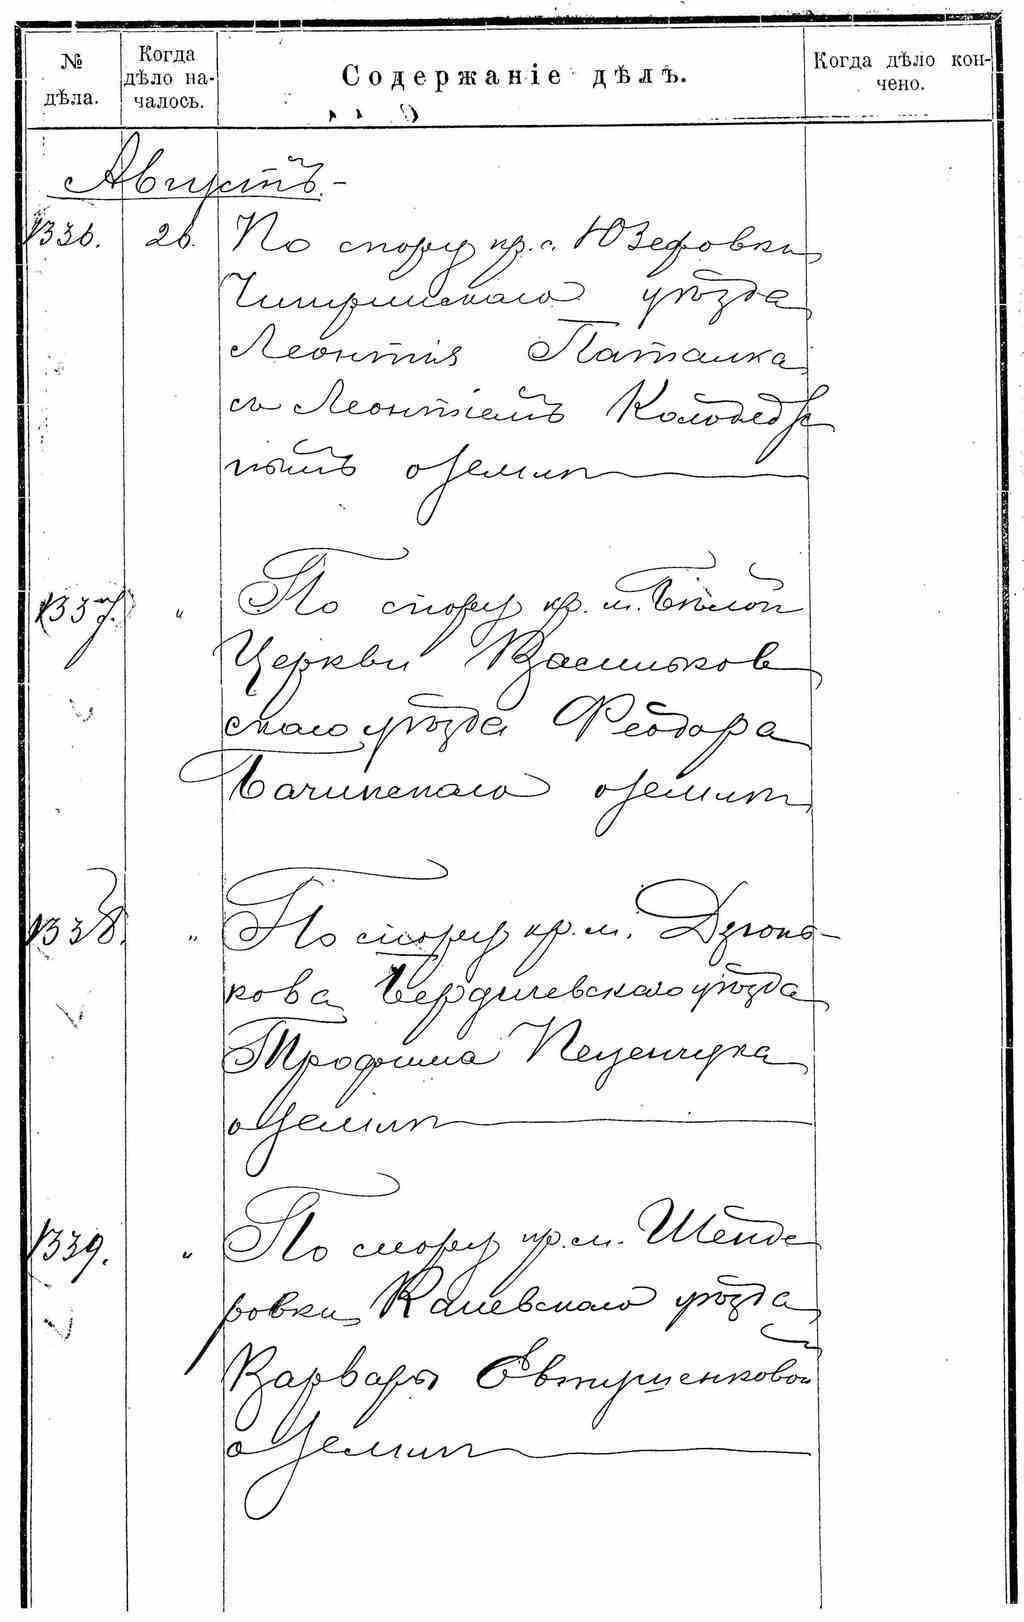 № дѣла.
Когда дѣло на-
чалось.
Содержаніе дѣлъ.
Когда дѣло кон-
чено.
Августъ.
1336. 26. По спору кр. с. Юзефовки
Чигиринскаго уѣзда
Леонтія Паталка
съ Леонтіемъ Колодеж
нымъ о землѣ
1337. " По спору кр. м. Бѣлой
Церкви Васильков
скаго уѣзда Феодора
Бачинскаго о землѣ
1338. " По спору кр. м. Дзюнь-
кова Бердичевскаго уѣзда
Трофима Пеценчука
о землѣ
1339. " По спору кр. м. Шенде
ровки Каневскаго уѣзда
Варвары Евтушенковой
о землѣ